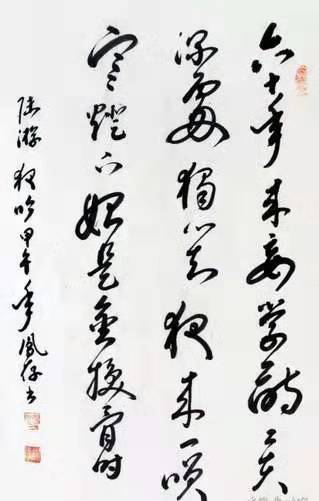 六十年来妄学诗工夫
深处獨心知夜来一笑
寒燈下始是金换骨时
陆游夜吟甲午年凤存书